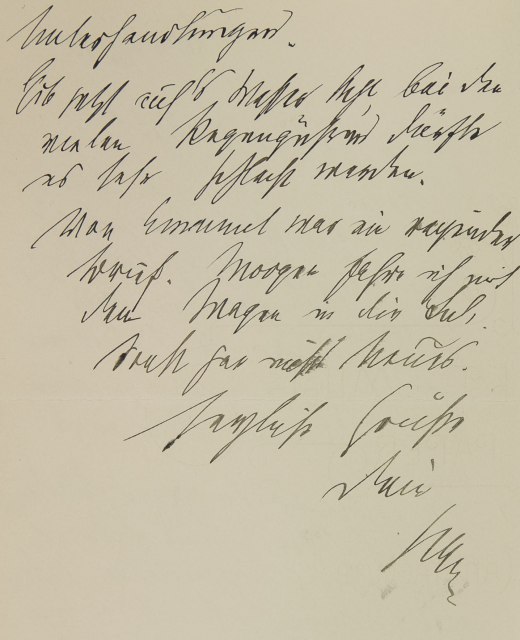 Unterhandlungen.
Gib jetzt auf's Wasser Acht, bei den
vielen Regengüssen dürfte
es sehr schlecht werden.
Von Emanuel war ein reizender
Brief. Morgen fahre ich mit
dem Wagen in die
Sonst gar nichts Neues.
Herzliche Grüße
Dein